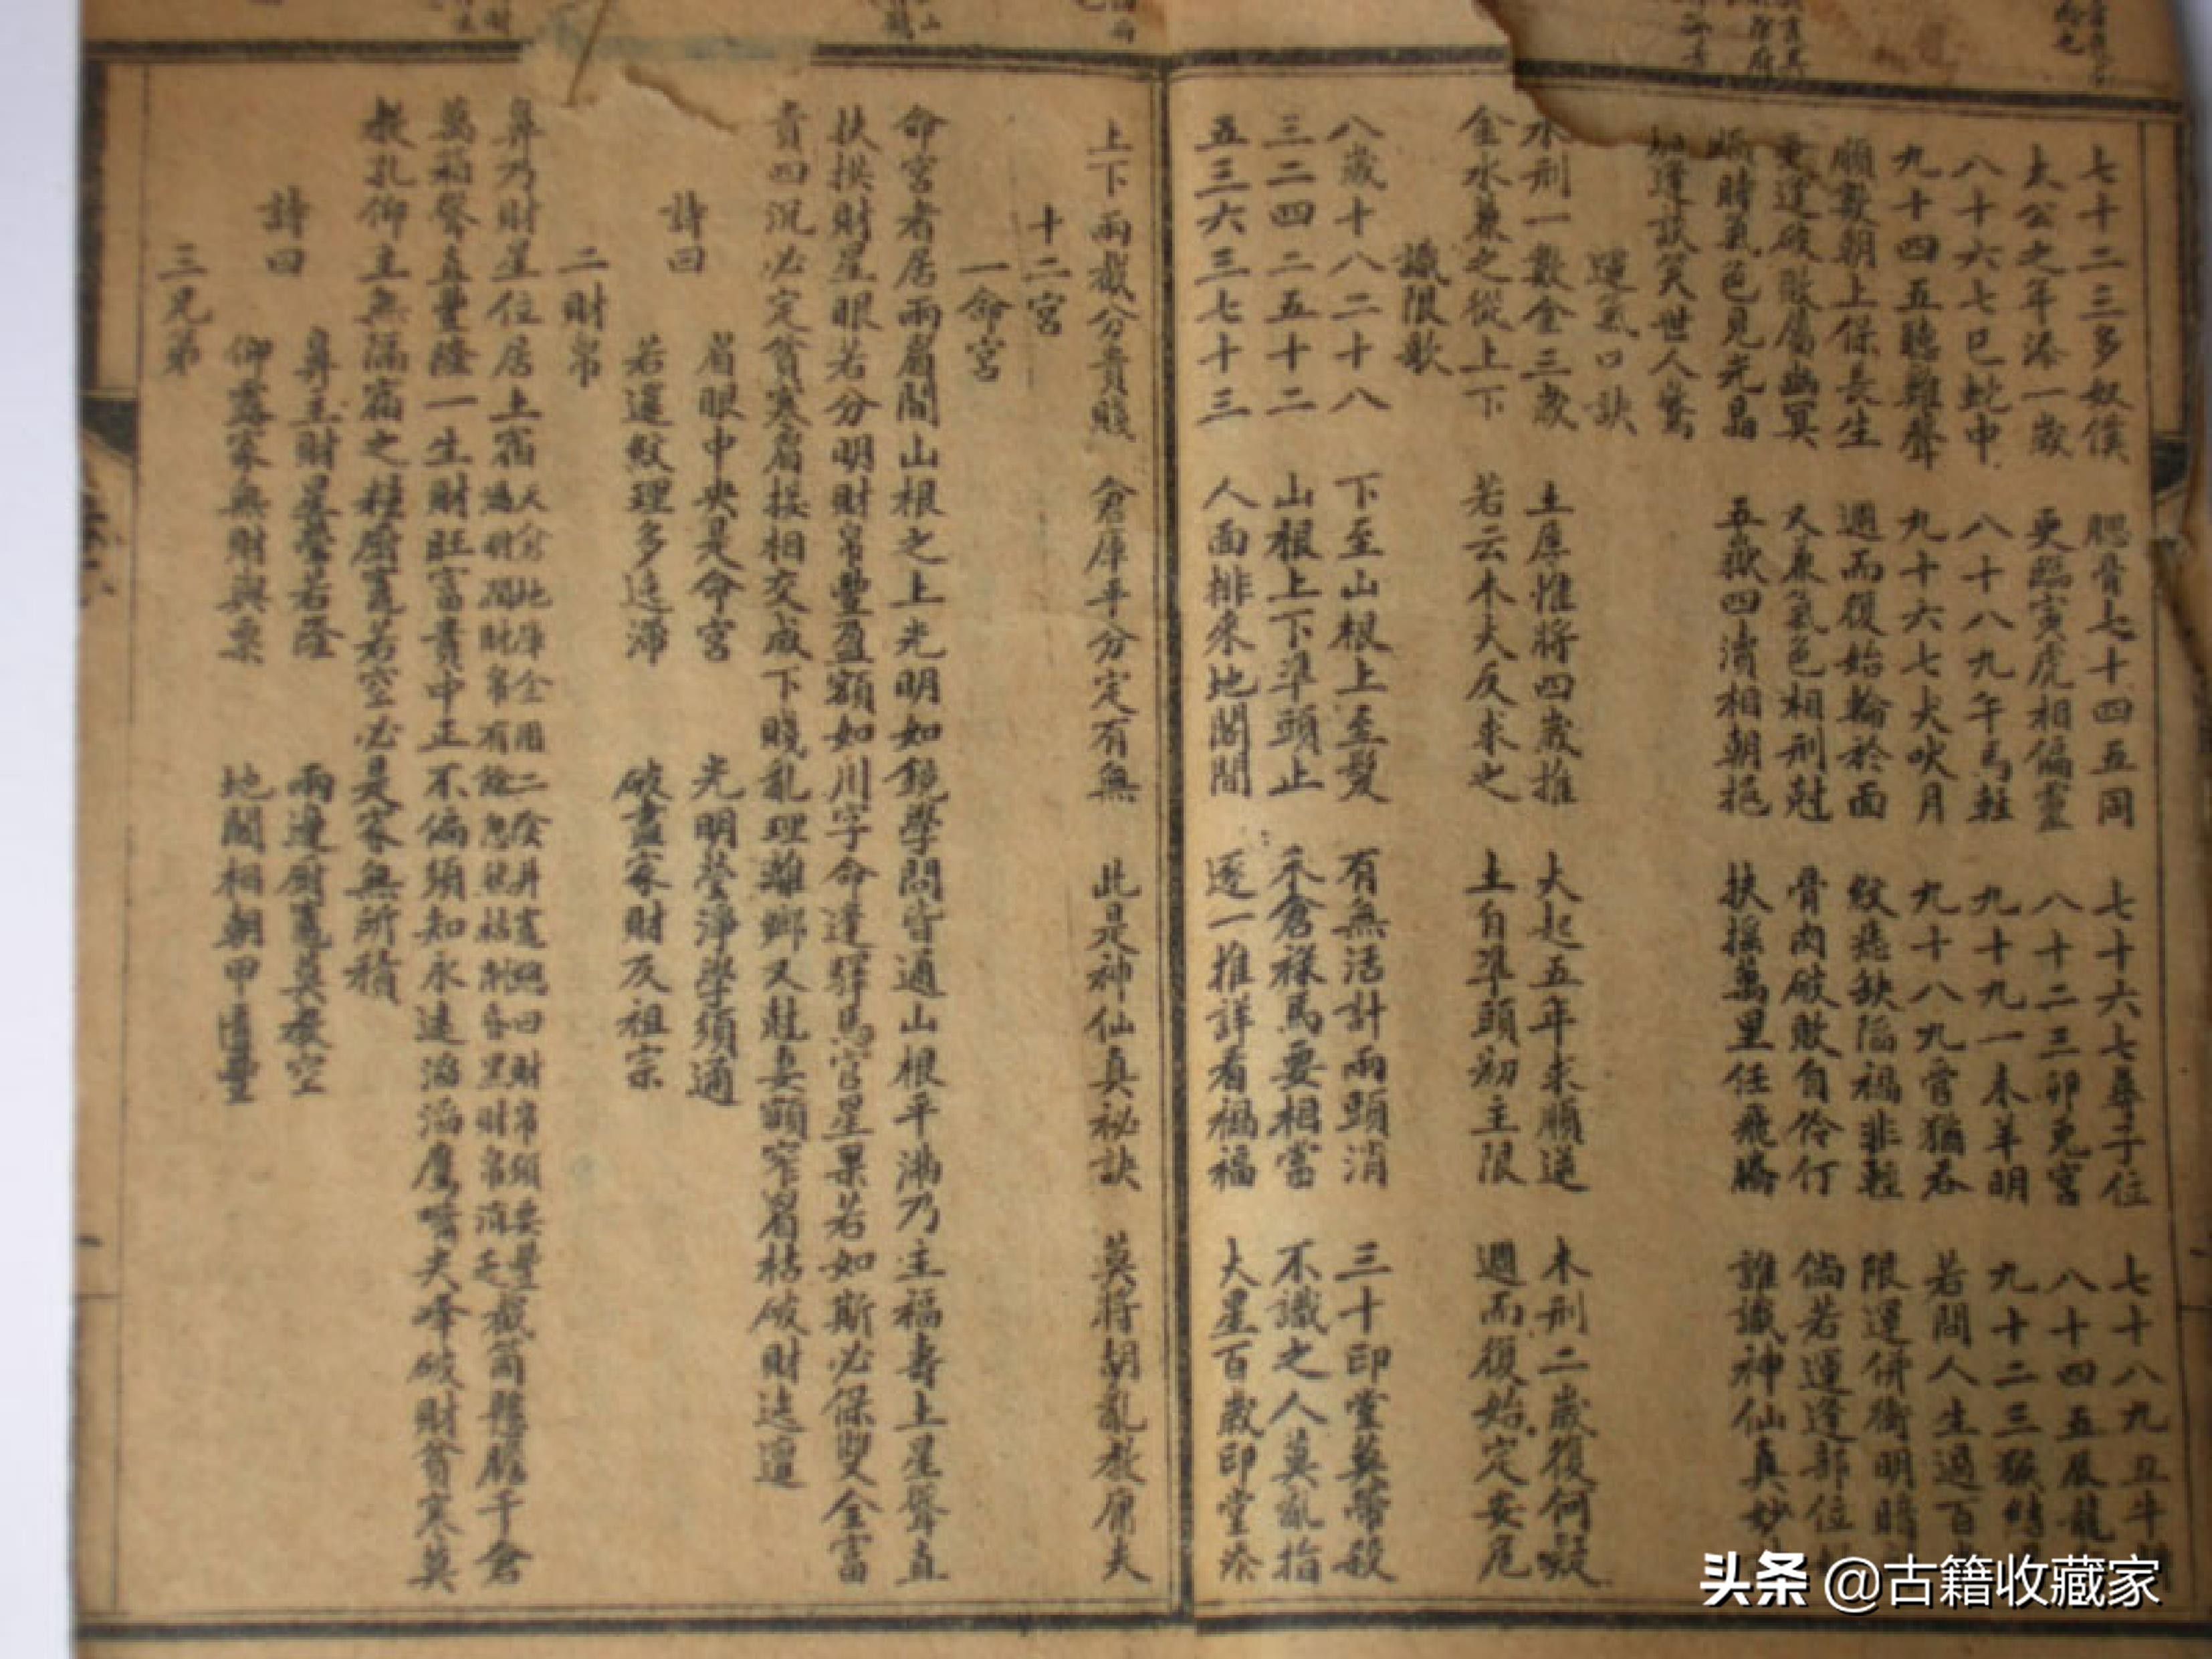 七十二三多奴僕 腮骨七十四五同 七十六七尋子位 七十八九丑牛
太公之年添一歲 更臨寅虎相偏靈 八十二三卯兔宮 八十四五辰龍
八十六七巳蛇中 八十八九午馬輕 九十九一未羊明 九十二三猴結
九十四五聽雞聲 九十六七犬吠月 九十八九亥豬吞 若問人生過百
順數朝上保長生 週而復始輪於面 紋痣缺陷禍非輕 限運併衝明暗
更逢破敗屬幽冥 又兼氣色相刑尅 骨肉破敗自伶仃 倘若運逢部位
時氣色見光晶 五嶽四瀆相朝挹 扶搖萬里任飛騰 誰識神仙真妙
逢談笑世人驚
運氣口訣
水刑一數金三歲 土厚惟將四歲推 火起五年求順逆 木刑二歲復何疑
金水兼之從上下 若云木火反求之 土自準頭初主限 週而復始定安危
識限歌
八歲十八二十八 下至山根上至髮 有無活計兩頭消 三十印堂莫帶殺
三二四二五十二 山根上下準頭止 禾倉祿馬要相當 不識之人莫亂指
五三六三七十三 人面排來地閣間 逐一推詳看禍福 火星百歲印堂添
上下兩截分貴賤 倉庫平分定有無 此是神仙真祕訣 莫將胡亂教庸夫
十二宮
一命宮
命宮者居兩眉間山根之上光明如鏡學問皆通山根平滿乃主福壽土星聳直
扶拱財星眼若分明財帛豐盈額如川字命逢驛馬官星果若如斯必保雙全富
貴凹沉必定貧寒眉接相交成下賤亂理離鄉又尅妻額窄眉枯破財迍邅
詩曰
眉眼中央是命宮 光明瑩淨學須通
若還紋理多迍滯 破盡家財及祖宗
二財帛
鼻乃財星位居土宿天倉地庫金甲二陰井竈總曰財帛須要豐
為財潤財帛有餘忽然枯削昏黑財帛消乏截筒懸膽千倉
萬箱聳直豐隆一生財旺富貴中正不偏須知永遠滔滔鷹嘴尖峰破財貧寒莫
教孔仰主無隔宿之糧廚竈若空必是家無所積
詩曰
鼻主財星瑩若隆 兩邊廚竈莫教空
仰露家無財與粟 地閣相朝甲匱豐
三兄弟
头条 @古籍收藏家